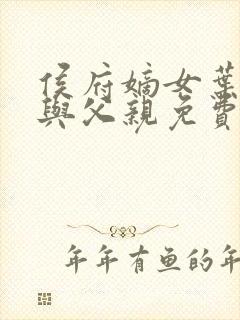 侯府嫡女葉
與父親免費
年年有鱼的年